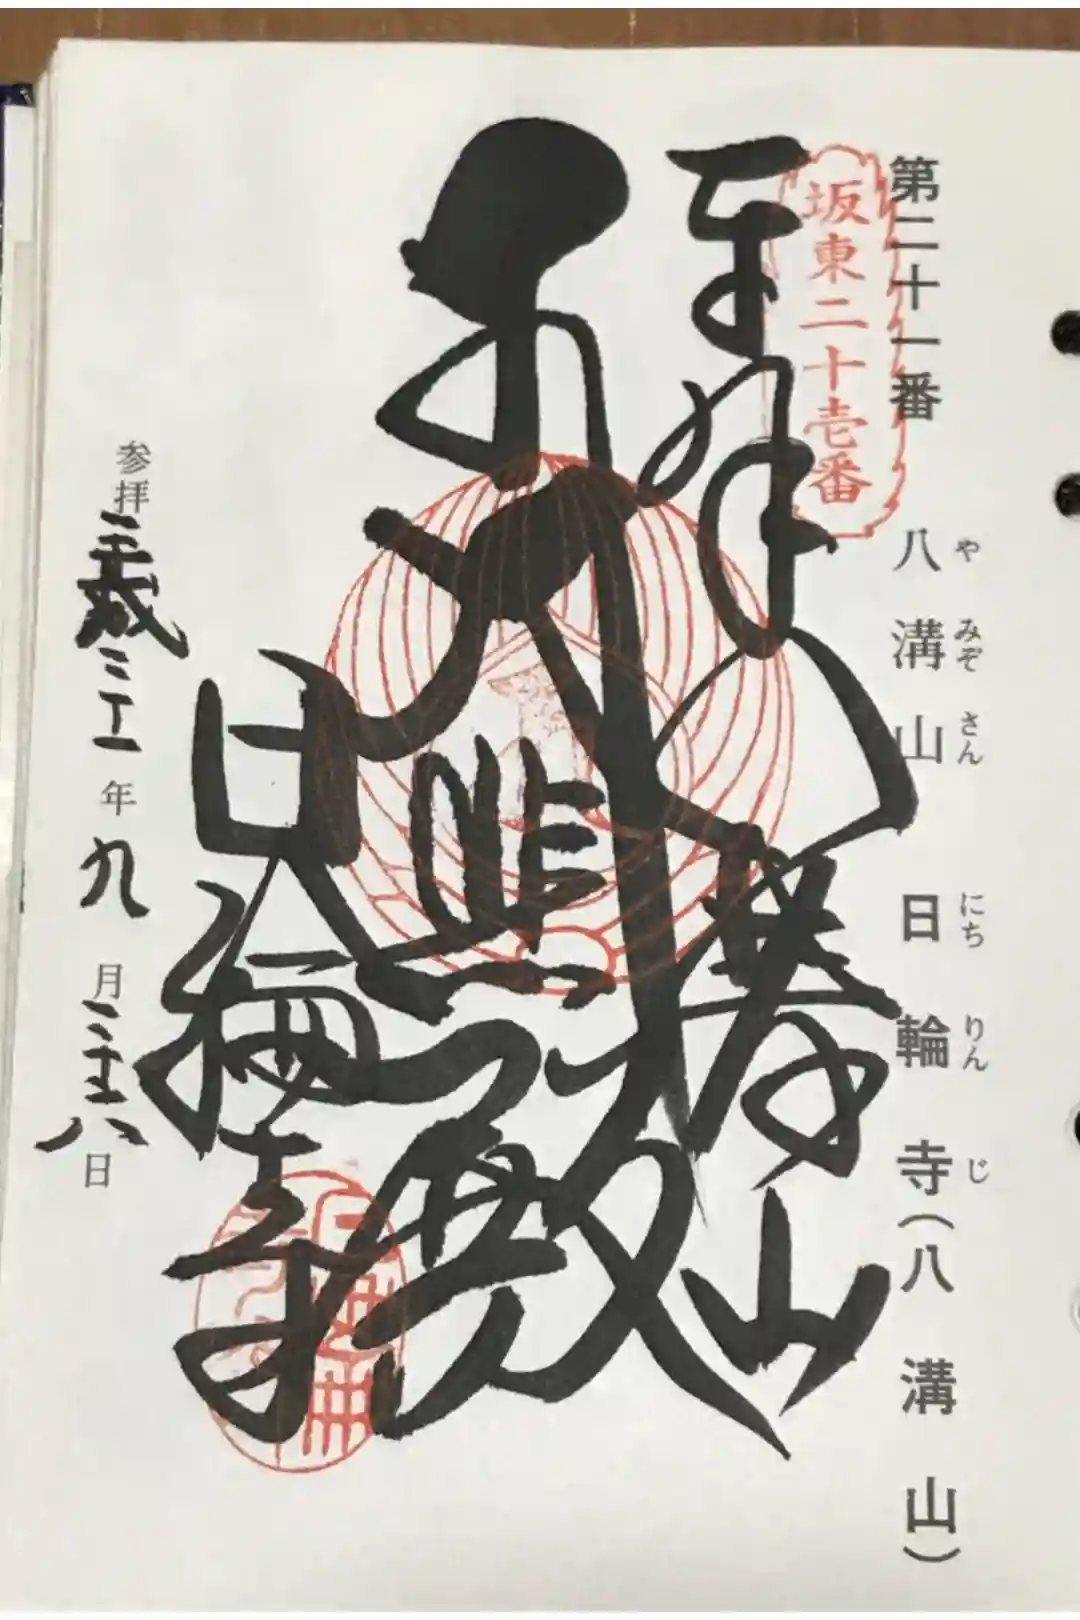 第二十一番 八溝山 日輪寺(八溝山)
やみぞさん にちりんじ
坂東二十壱番
奉拝 八溝山
大悲殿
日輪寺
参拝 年九月 日